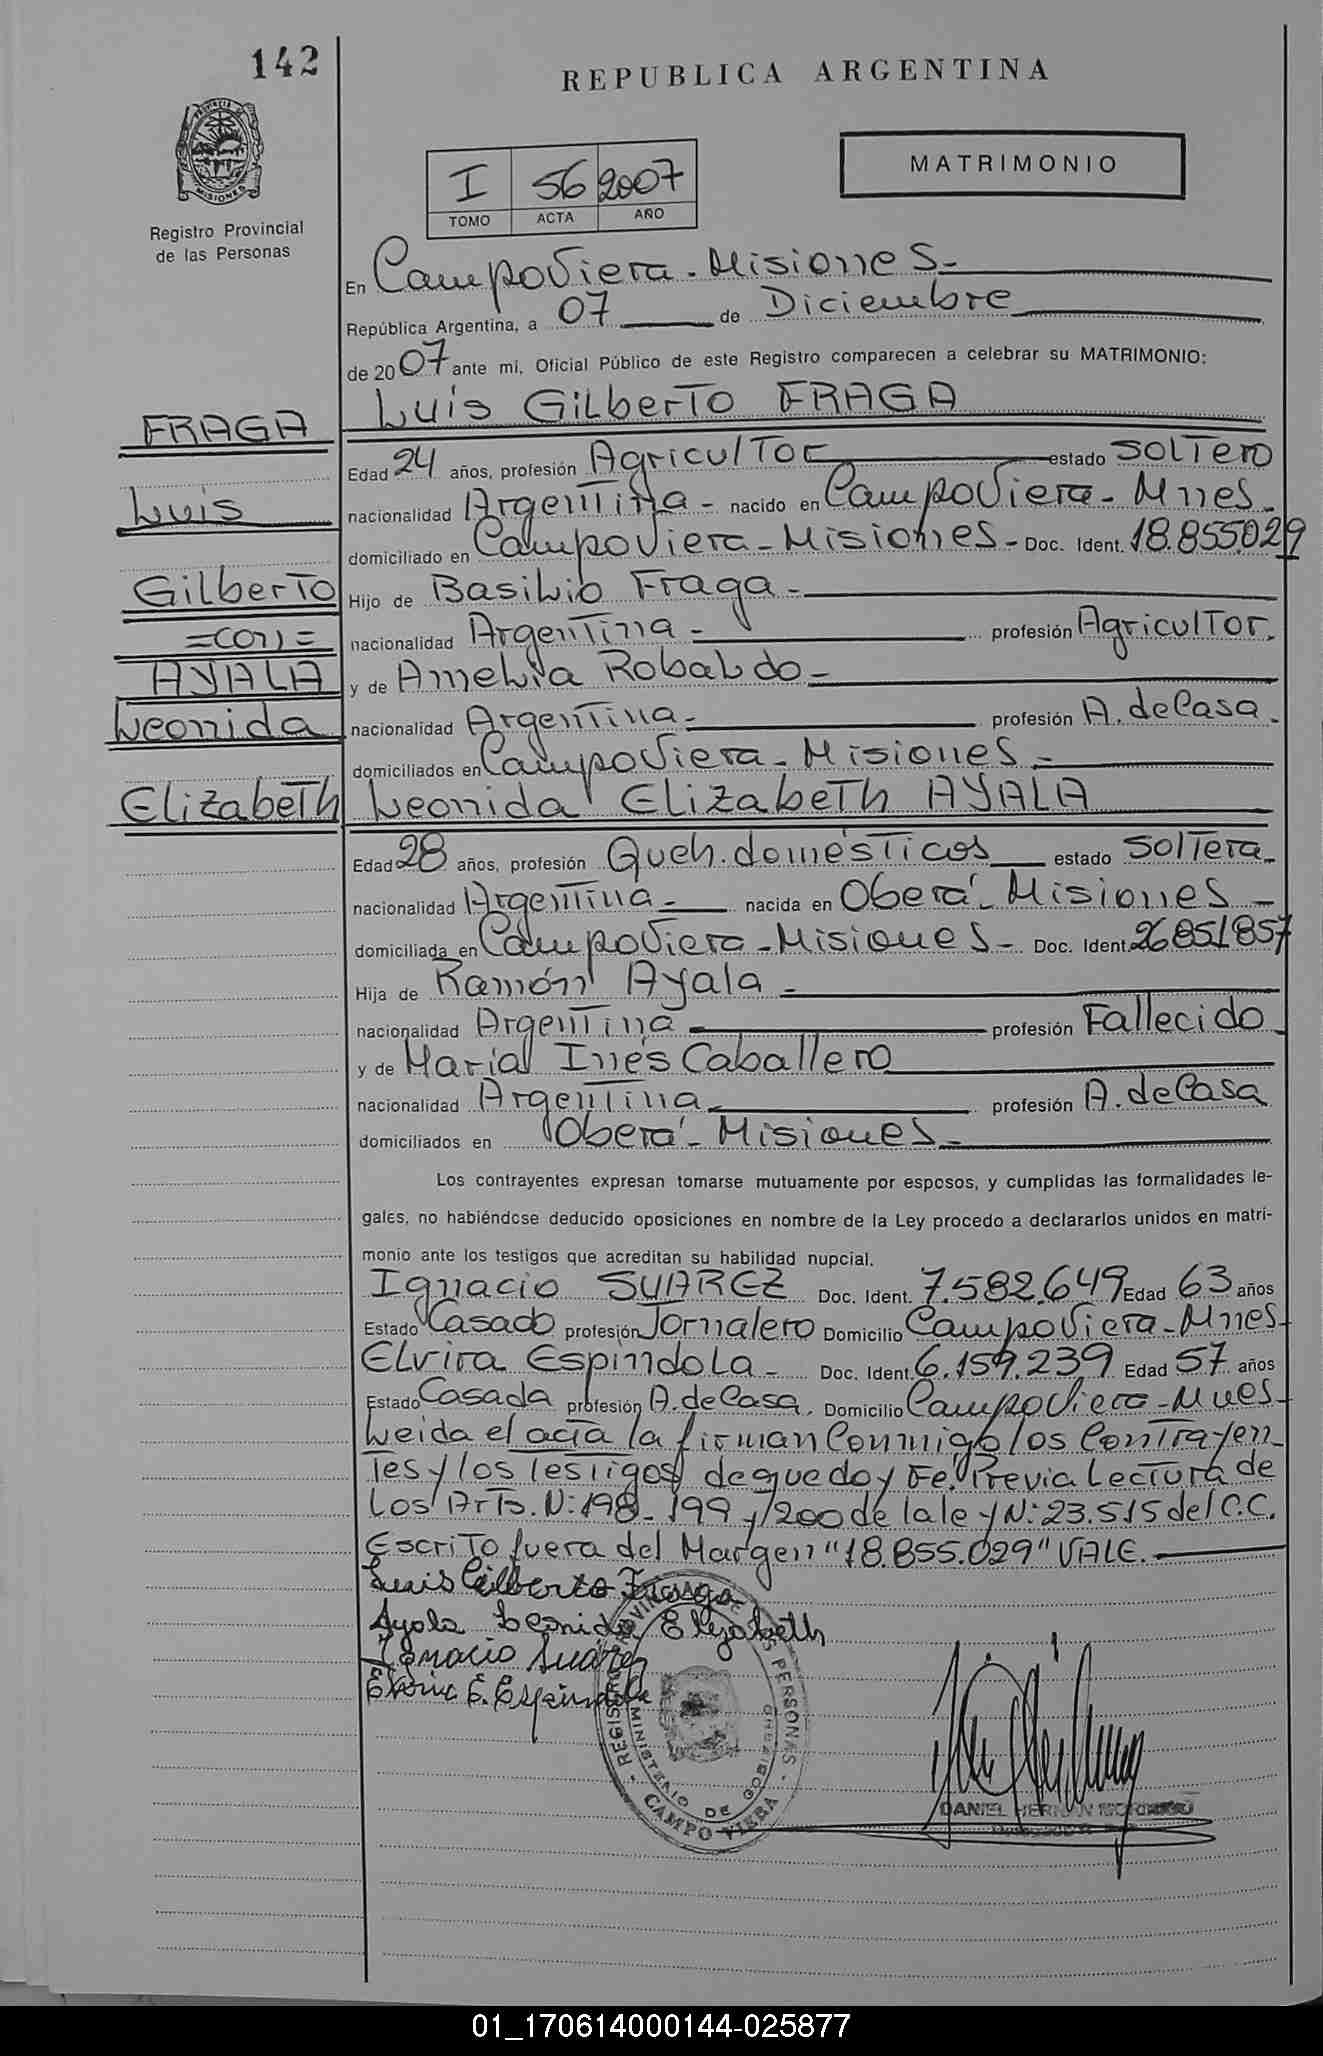 142
REPUBLICA ARGENTINA
MISIONES
Registro Provincial
de las Personas
I 56 2007
TOMO ACTA AÑO
MATRIMONIO
En CampoViera - Misiones.-
República Argentina, a 07 de Diciembre
de 2007 ante mi, Oficial Público de este Registro comparecen a celebrar su MATRIMONIO:
FRAGA
Luis Gilberto FRAGA
Edad 24 años, profesión Agricultor estado Soltero
Luis
nacionalidad Argentina - nacido en CampoViera - Mnes.
domiciliado en CampoViera - Misiones - Doc. Ident. 18.855.029
Gilberto
Hijo de Basilio Fraga -
=con=
nacionalidad Argentina - profesión Agricultor.
AYALA
y de Amelia Robaldo -
Leonida
nacionalidad Argentina - profesión A. de Casa.
domiciliados en CampoViera - Misiones -
Elizabeth
Leonida Elizabeth AYALA
Edad 28 años, profesión Queh. domésticos estado Soltera.
nacionalidad Argentina - nacida en Oberá - Misiones -
domiciliada en CampoViera - Misiones - Doc. Ident. 26.851.857
Hija de Ramón Ayala -
nacionalidad Argentina profesión Fallecido
y de María Inés Caballero
nacionalidad Argentina profesión A. de Casa
domiciliados en Oberá - Misiones -
Los contrayentes expresan tomarse mutuamente por esposos, y cumplidas las formalidades le-
gales, no habiéndose deducido oposiciones en nombre de la Ley procedo a declararlos unidos en matri-
monio ante los testigos que acreditan su habilidad nupcial.
Ignacio SUAREZ Doc. Ident. 7.582.649 Edad 63 años
Estado Casado profesión Jornalero Domicilio CampoViera - Mnes
Elvira Espindola - Doc. Ident. 6.159.239 Edad 57 años
Estado Casada profesión A. de Casa. Domicilio CampoViera - Mnes -
Leida el acta la firman Conmigo los Contrayen_
tes y los Testigos de que doy Fe. Previa Lectura de
Los Arts. N: 198 - 199 y 200 de la ley N: 23.515 del C.C.
Escrito fuera del Margen "18.855.029" VALE.
Luis Gilberto Fraga
Ayala Leonida Elizabeth
Ignacio Suárez
Elvira E. Espindola
REGISTRO PROVINCIAL DE LAS PERSONAS - CAMPO VIERA -
MINISTERIO DE GOBIERNO
DANIEL HERNAN
01_170614000144-025877